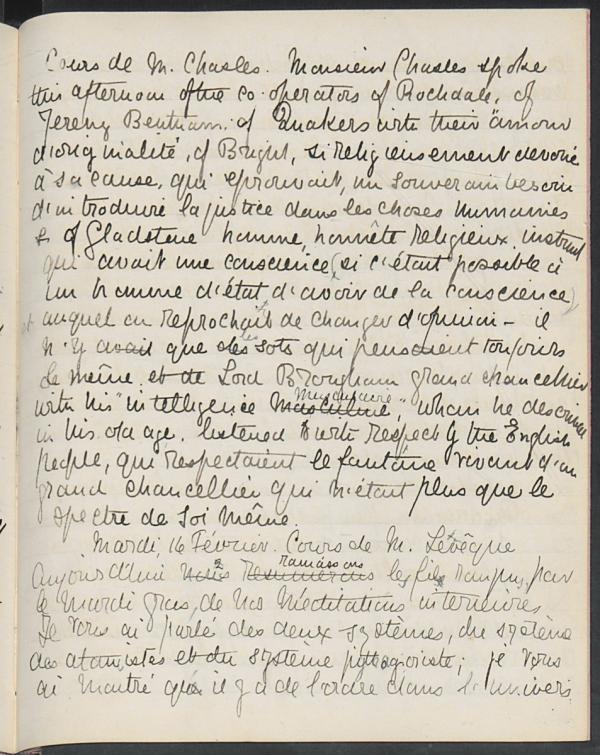 Cours de M. Chasles. Monsieur Chasles spoke
this afternoon of the co-operators of Rochdale, of
Jeremy Bentham, of Quakers with their "amour
d'originalité, of Bright, si religieusement dévoué
à sa cause, qui éprouvait, un souverain besoin
d'introduire la justice dans les choses humaines
& of Gladstone homme, honnête religieux, instruit
qui avait une conscience (si c'était possible à
un homme d'état d'avoir de la conscience)
et auquel on reprochait de changer d'opinion - il
n'y avait que les sots qui pensaient toujours
de même et de Lord Brougham grand chancellier
with his "intelligence masculine musculaire", whom he described
in his old age, listened to with respect by the English
people, qui respectaient le fantôme vivant d'un
grand chancellier qui n'était plus que le
spectre de soi même.
Mardi, 16 Février. Cours de M. Lévêque
Aujourd'hui nous resumerons ramassons les fils rompus, par
le Mardi gras, de nos méditations intérieures
Je vous ai parlé des deux systèmes, du système
des atomistes et du système pythagoriste; je vous
ai montré qu'il y a de l'ordre dans l'univers